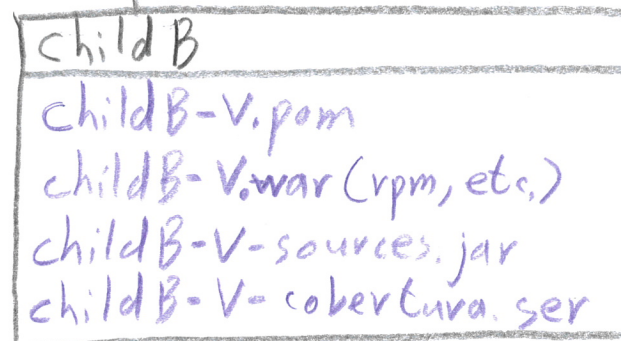 childB
childB-V.pom
childB-V.war (rpm, etc.)
childB-V-sources.jar
childB-V-cobertura.ser